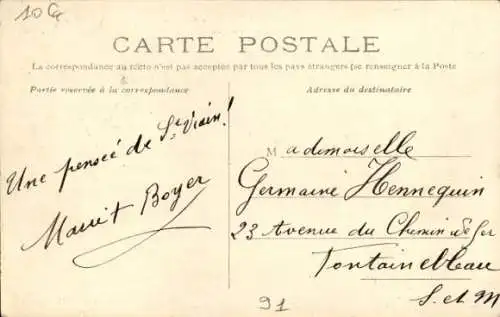 10 €
CARTE POSTALE
La correspondance au recto n'est pas acceptée par tous les pays étrangers (se renseigner à la Poste
Partie réservée à la correspondance
Adresse du destinataire
Une pensée de St Vrain!
Boyer
Mademoiselle
Germaine Hennequin
23 Avenue du Chemin de fer
Fontainebleau
S. et M
91